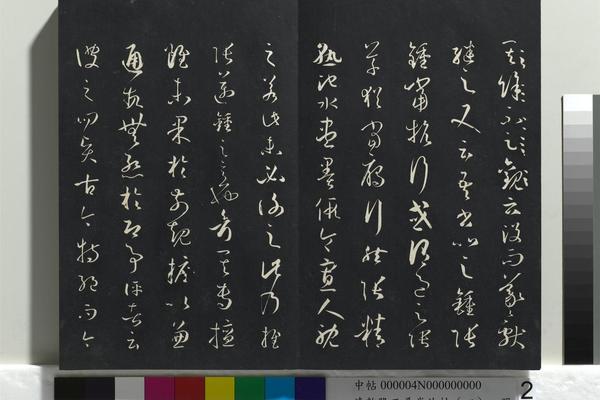 其餘不足觀云沒而羲獻
繼之又云吾書比之鍾張
鍾當抗行或謂過之張
草猶當雁行然張精
熟池水盡墨假令寡人耽
之若此未必謝之此乃推
張邁鍾之意也考其專擅
雖未果於前規摭以兼
通故無慚於即事評者云
彼之四賢古今特絕而今
中帖 000004N000000000
2